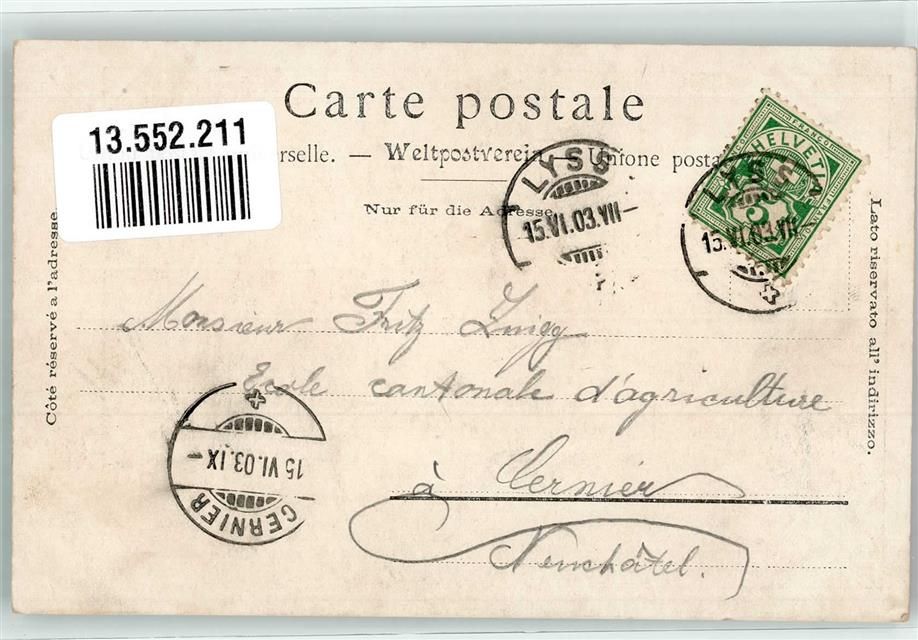 Carte postale
13.552.211
rselle. — Weltpostverein — Unione posta
Nur für die Adresse
Côté réservé à l'adresse.
Lato riservato all' indirizzo.
LYSS
15.VI.03.VII—
HELVETIA
FRANCO
5
LYSS
15.VI.03.VII
Monsieur Fritz
Ecole cantonale d'agriculture
à Cernier
Neuchâtel.
15 VI.03.IX—
CERNIER